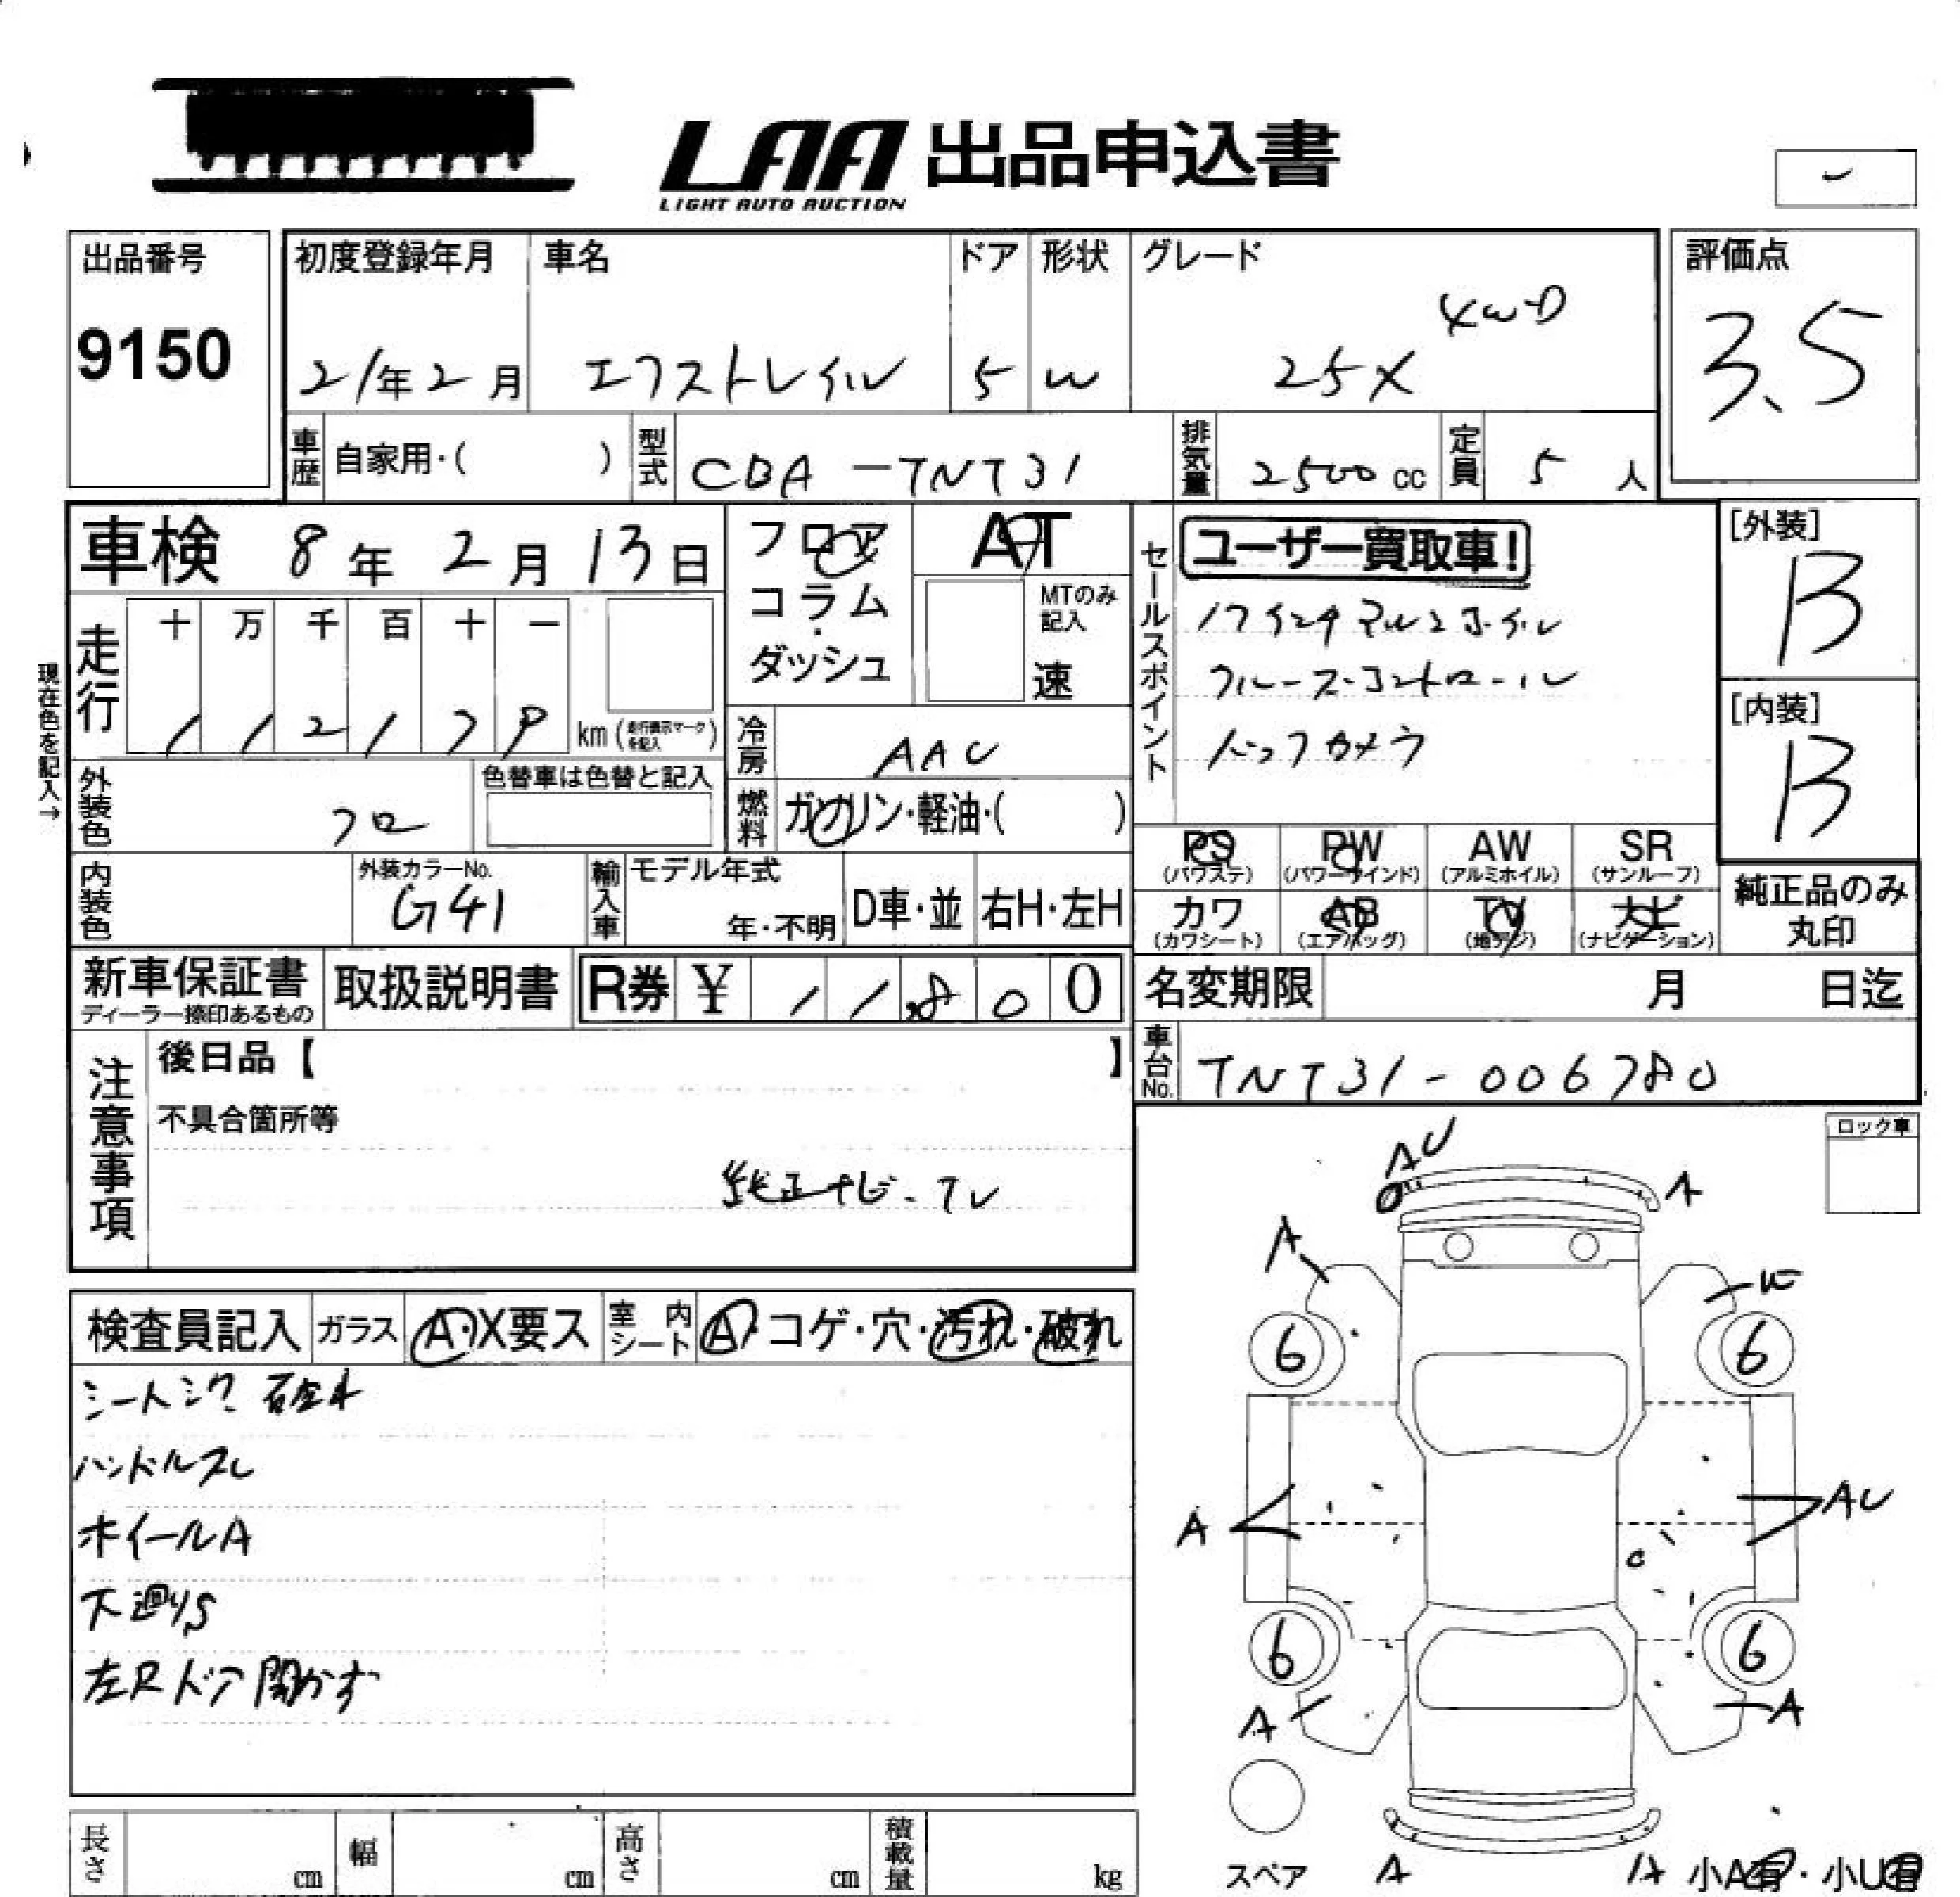 LAA 出品申込書
LIGHT AUTO AUCTION
出品番号
9150
初度登録年月 車名 ドア 形状 グレード
21年2月 エクストレイル 5 W 25X 4WD
評価点
3.5
車歴 自家用・( ) 型式 CBA-TNT31 排気量 2500cc 定員 5人
車検 8年2月13日
フロア
コラム
・
ダッシュ
AT
MTのみ
記入
速
セールスポイント
ユーザー買取車!
17インチアルミホイル
クルーズ・コントロール
バックカメラ
[外装]
B
[内装]
B
現在色を記入→
走行 十 万 千 百 十 一
112179 km (走行表示マークを記入)
冷房 AAC
外装色 クロ 色替車は色替と記入
燃料 ガソリン・軽油・( )
PS (パワステ) PW (パワーウインド) AW (アルミホイル) SR (サンルーフ)
カワ (カワシート) AB (エアバッグ) TV (地デジ) ナビ (ナビゲーション)
純正品のみ
丸印
内装色 外装カラーNo. G41
輸入車 モデル年式 年・不明 D車・並 右H・左H
新車保証書 取扱説明書 R券 ¥ 11,800
ディーラー捺印あるもの
名変期限 月 日迄
車台No. TNT31-006780
注意事項
後日品【 】
不具合箇所等
純正ナビ・TV
ロック車
検査員記入 ガラス A・X要ス 室内シート A・コゲ・穴・汚れ・破れ
ハンドルスレ
ホイールA
下廻りS
左Rドア開かず
AU
A
A
6
6
A
AU
6
6
A
A
スペア
A
A
小A有・小U有
長さ cm 幅 cm 高さ cm 積載量 kg